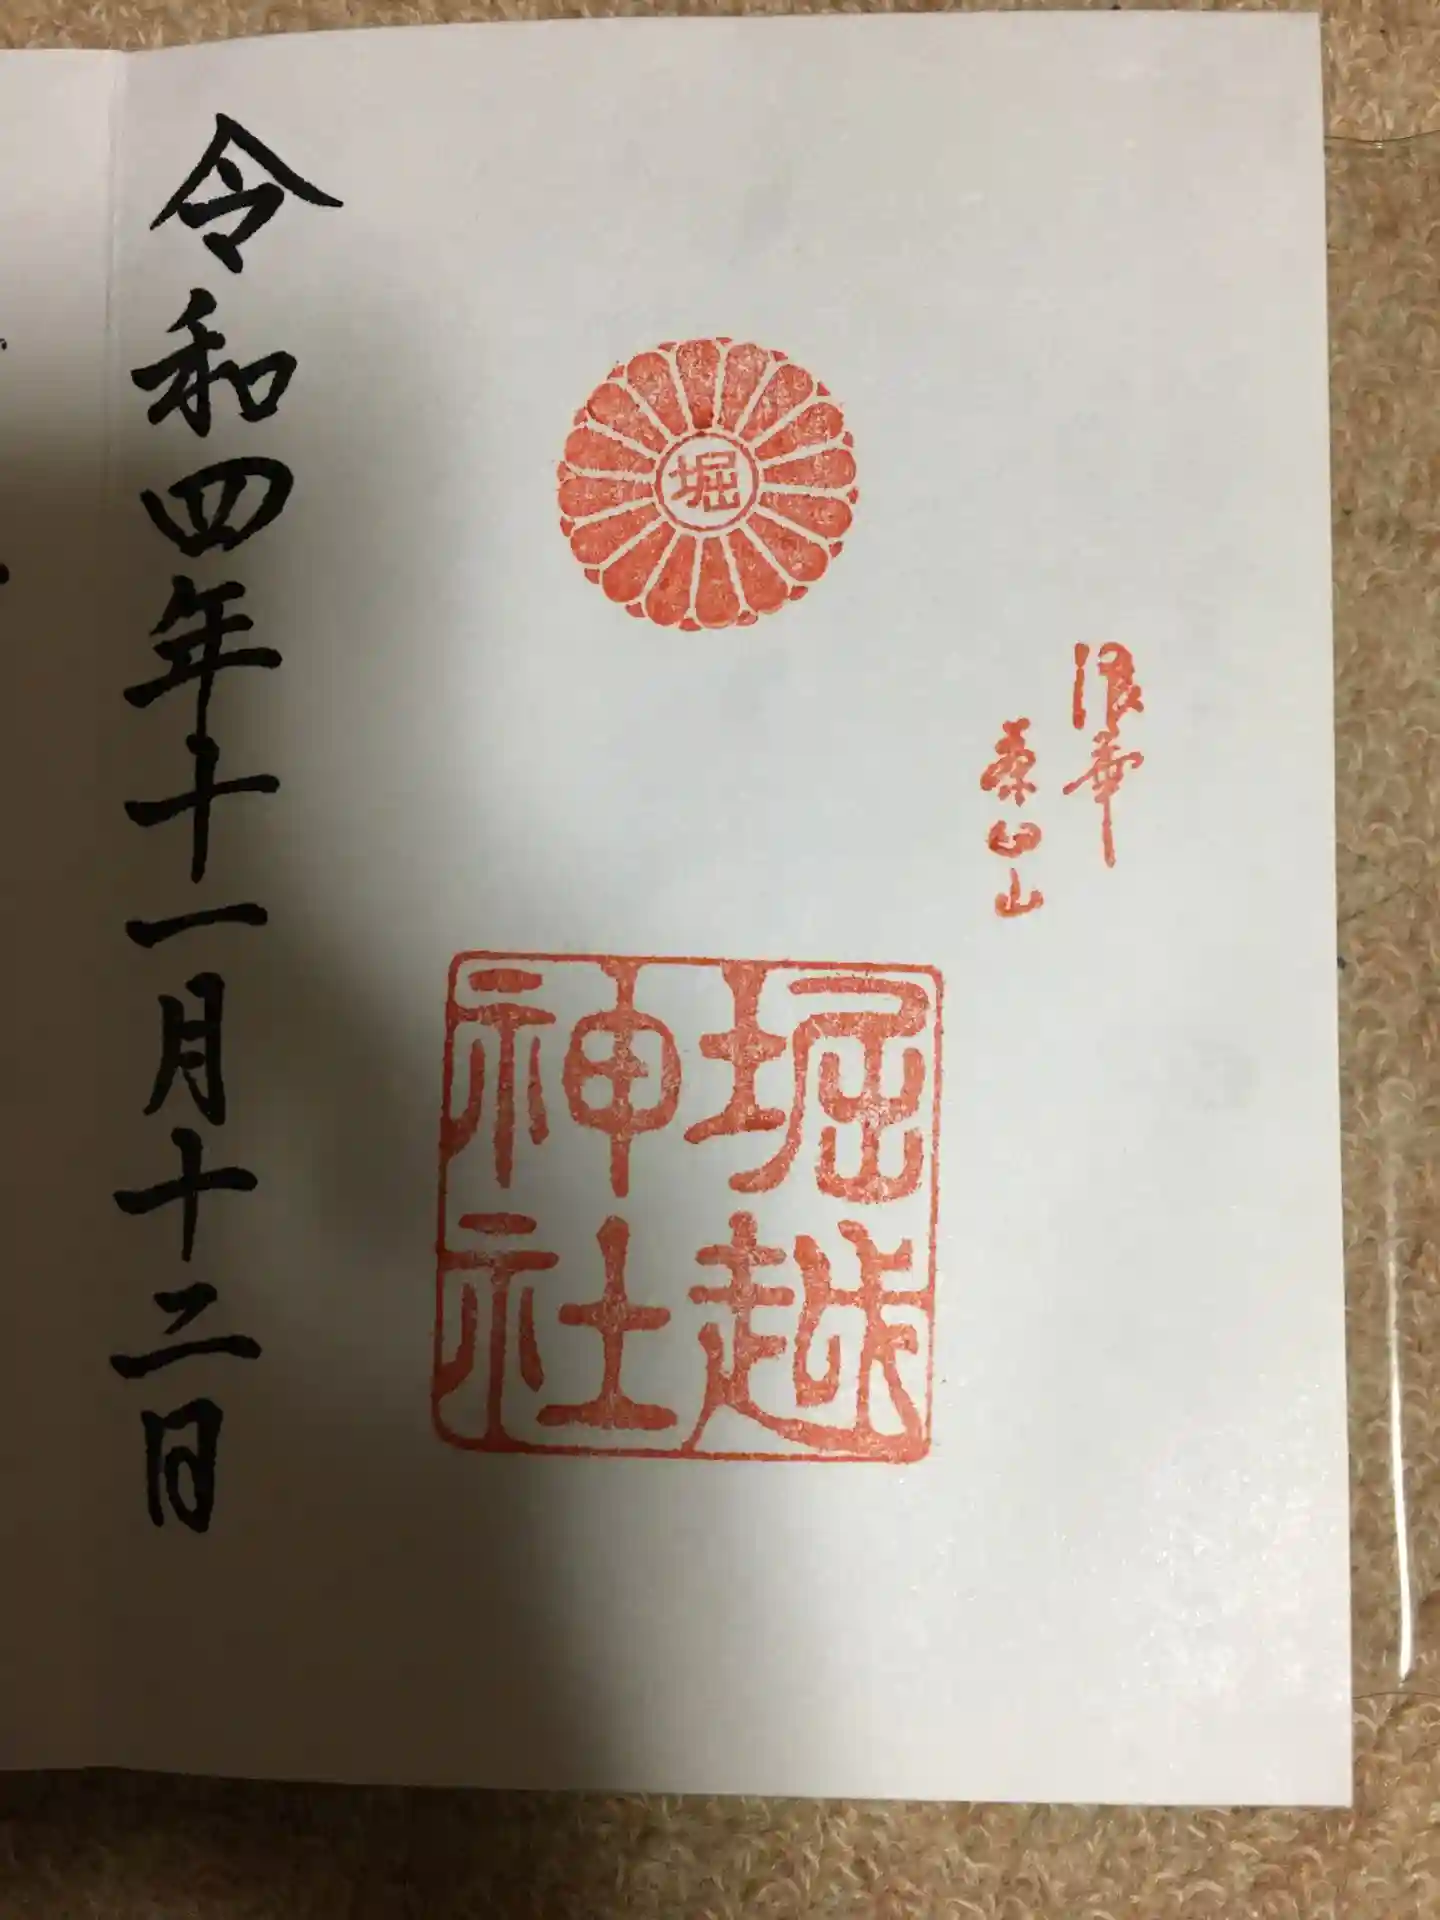 浪華
茶臼山
堀
堀越
神社
令和四年十一月十二日